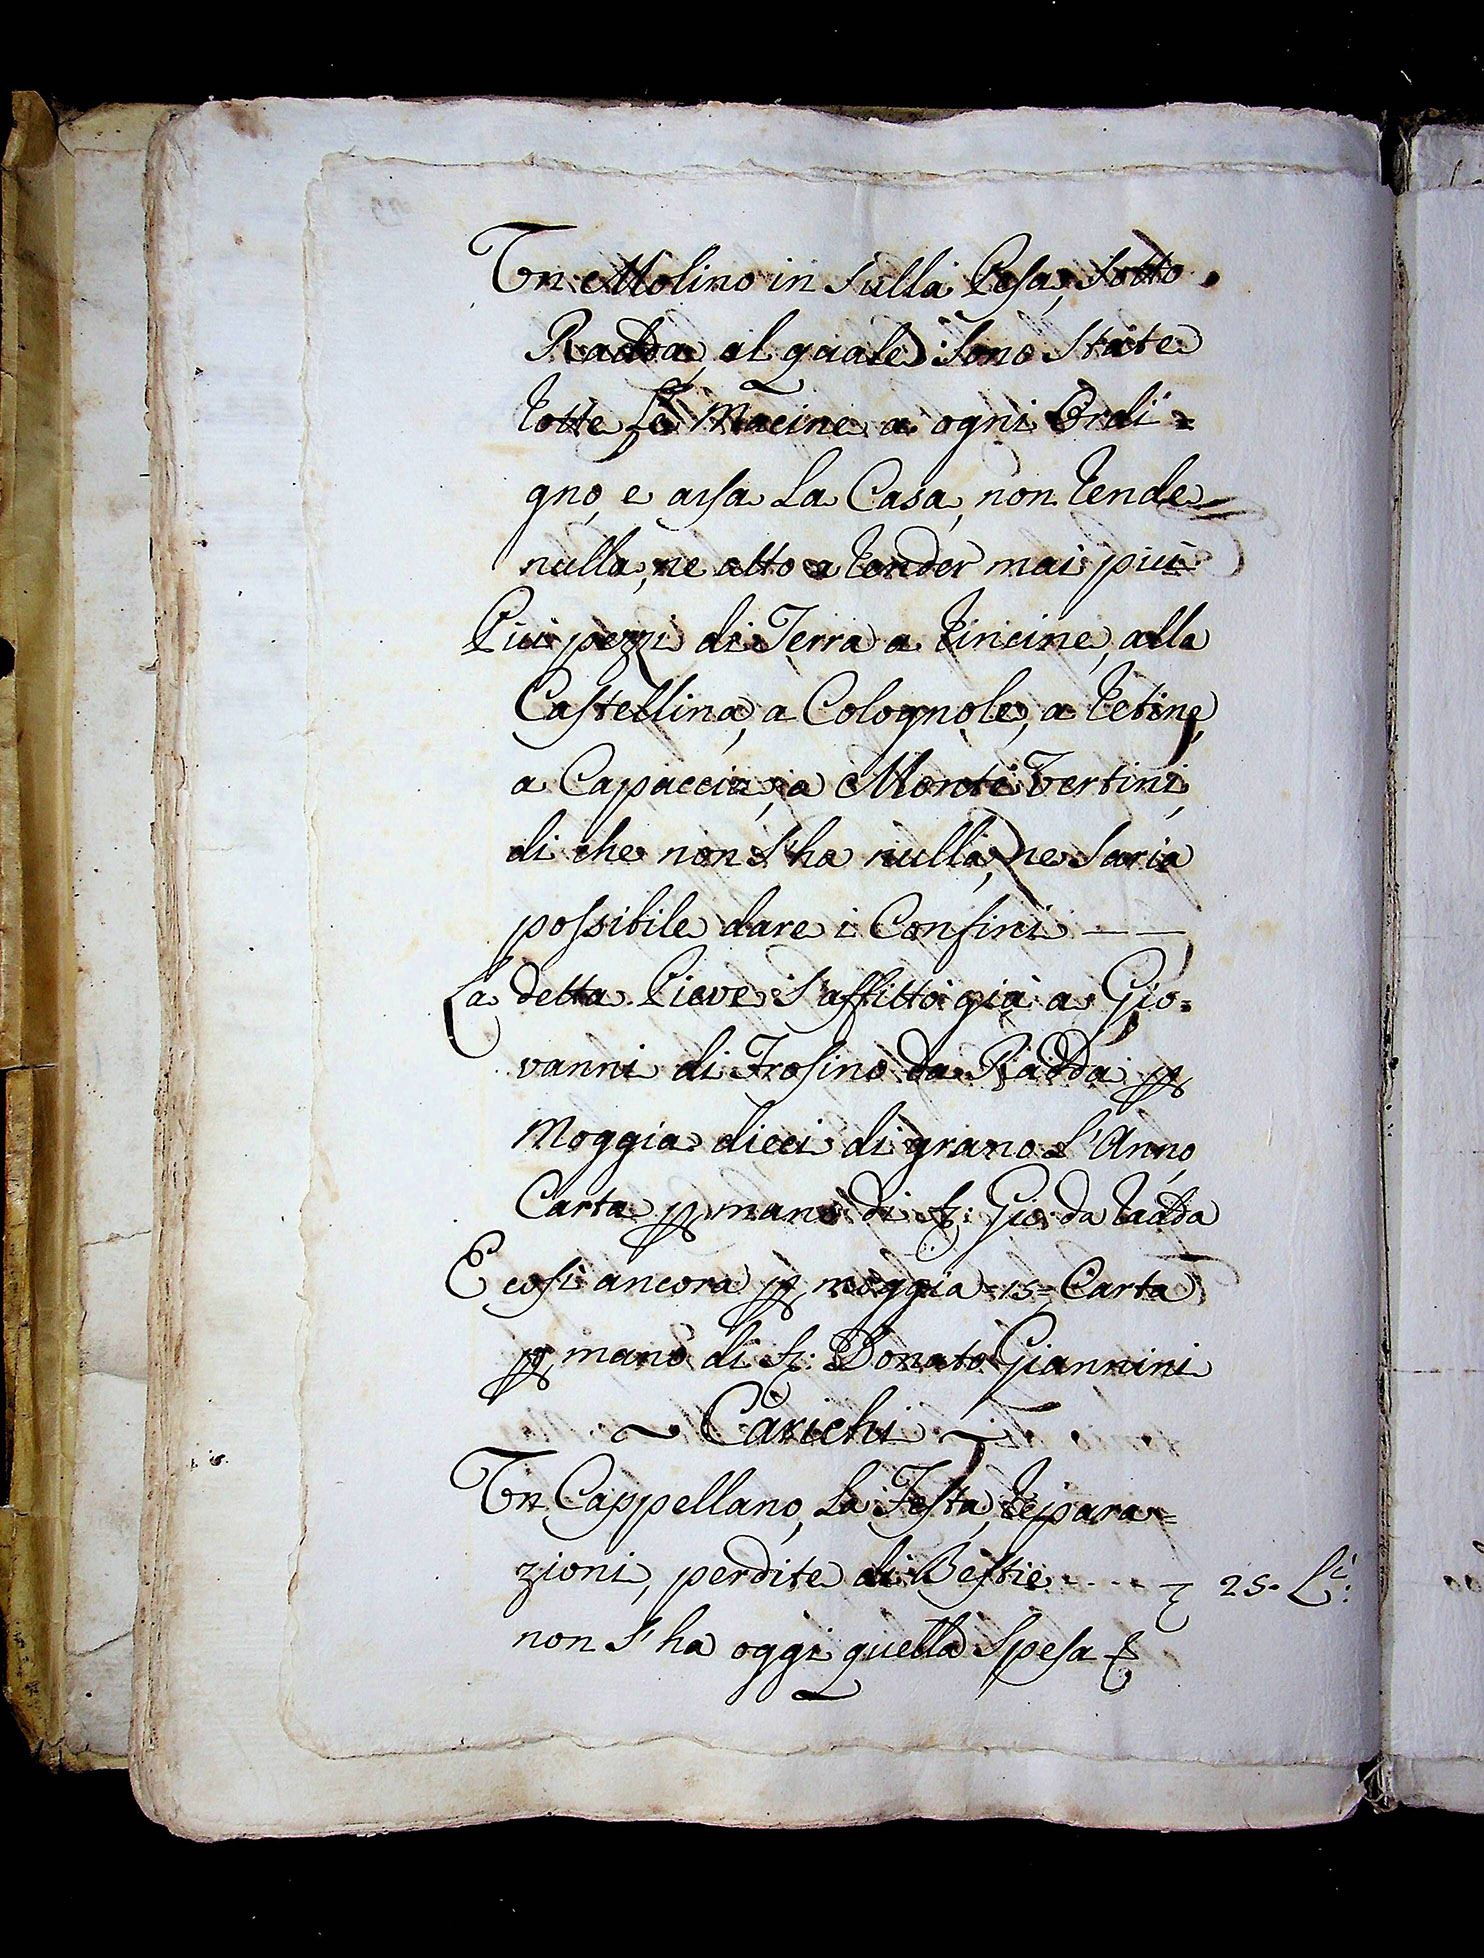 Un Molino in sulla Pesa, sotto
Radda, al quale sono state
rotte le Macine a ogni Ordi=
gno, e arsa la Casa, non rende
nulla, ne atto a render mai più
Più pezzi di Terra a Rincine, alla
Castellina, a Colognole, a Retine,
a Capaccia, a Monte Vertini,
di che non s'ha nulla, ne saria
possibile dare i Confini — —
La detta Pieve s'affittò già a Gio=
vanni di Frosino da Radda p
Moggia dieci di grano l'Anno,
Carta p mano di S: Gio: da Radda
E così ancora p moggia =15= Carta
p mano di S: Donato Giannini
~ Carichi ~
Un Cappellano, la Festa, repara=
zioni, perdite di Bestie - - - - 25. L:
non s'ha oggi quella spesa